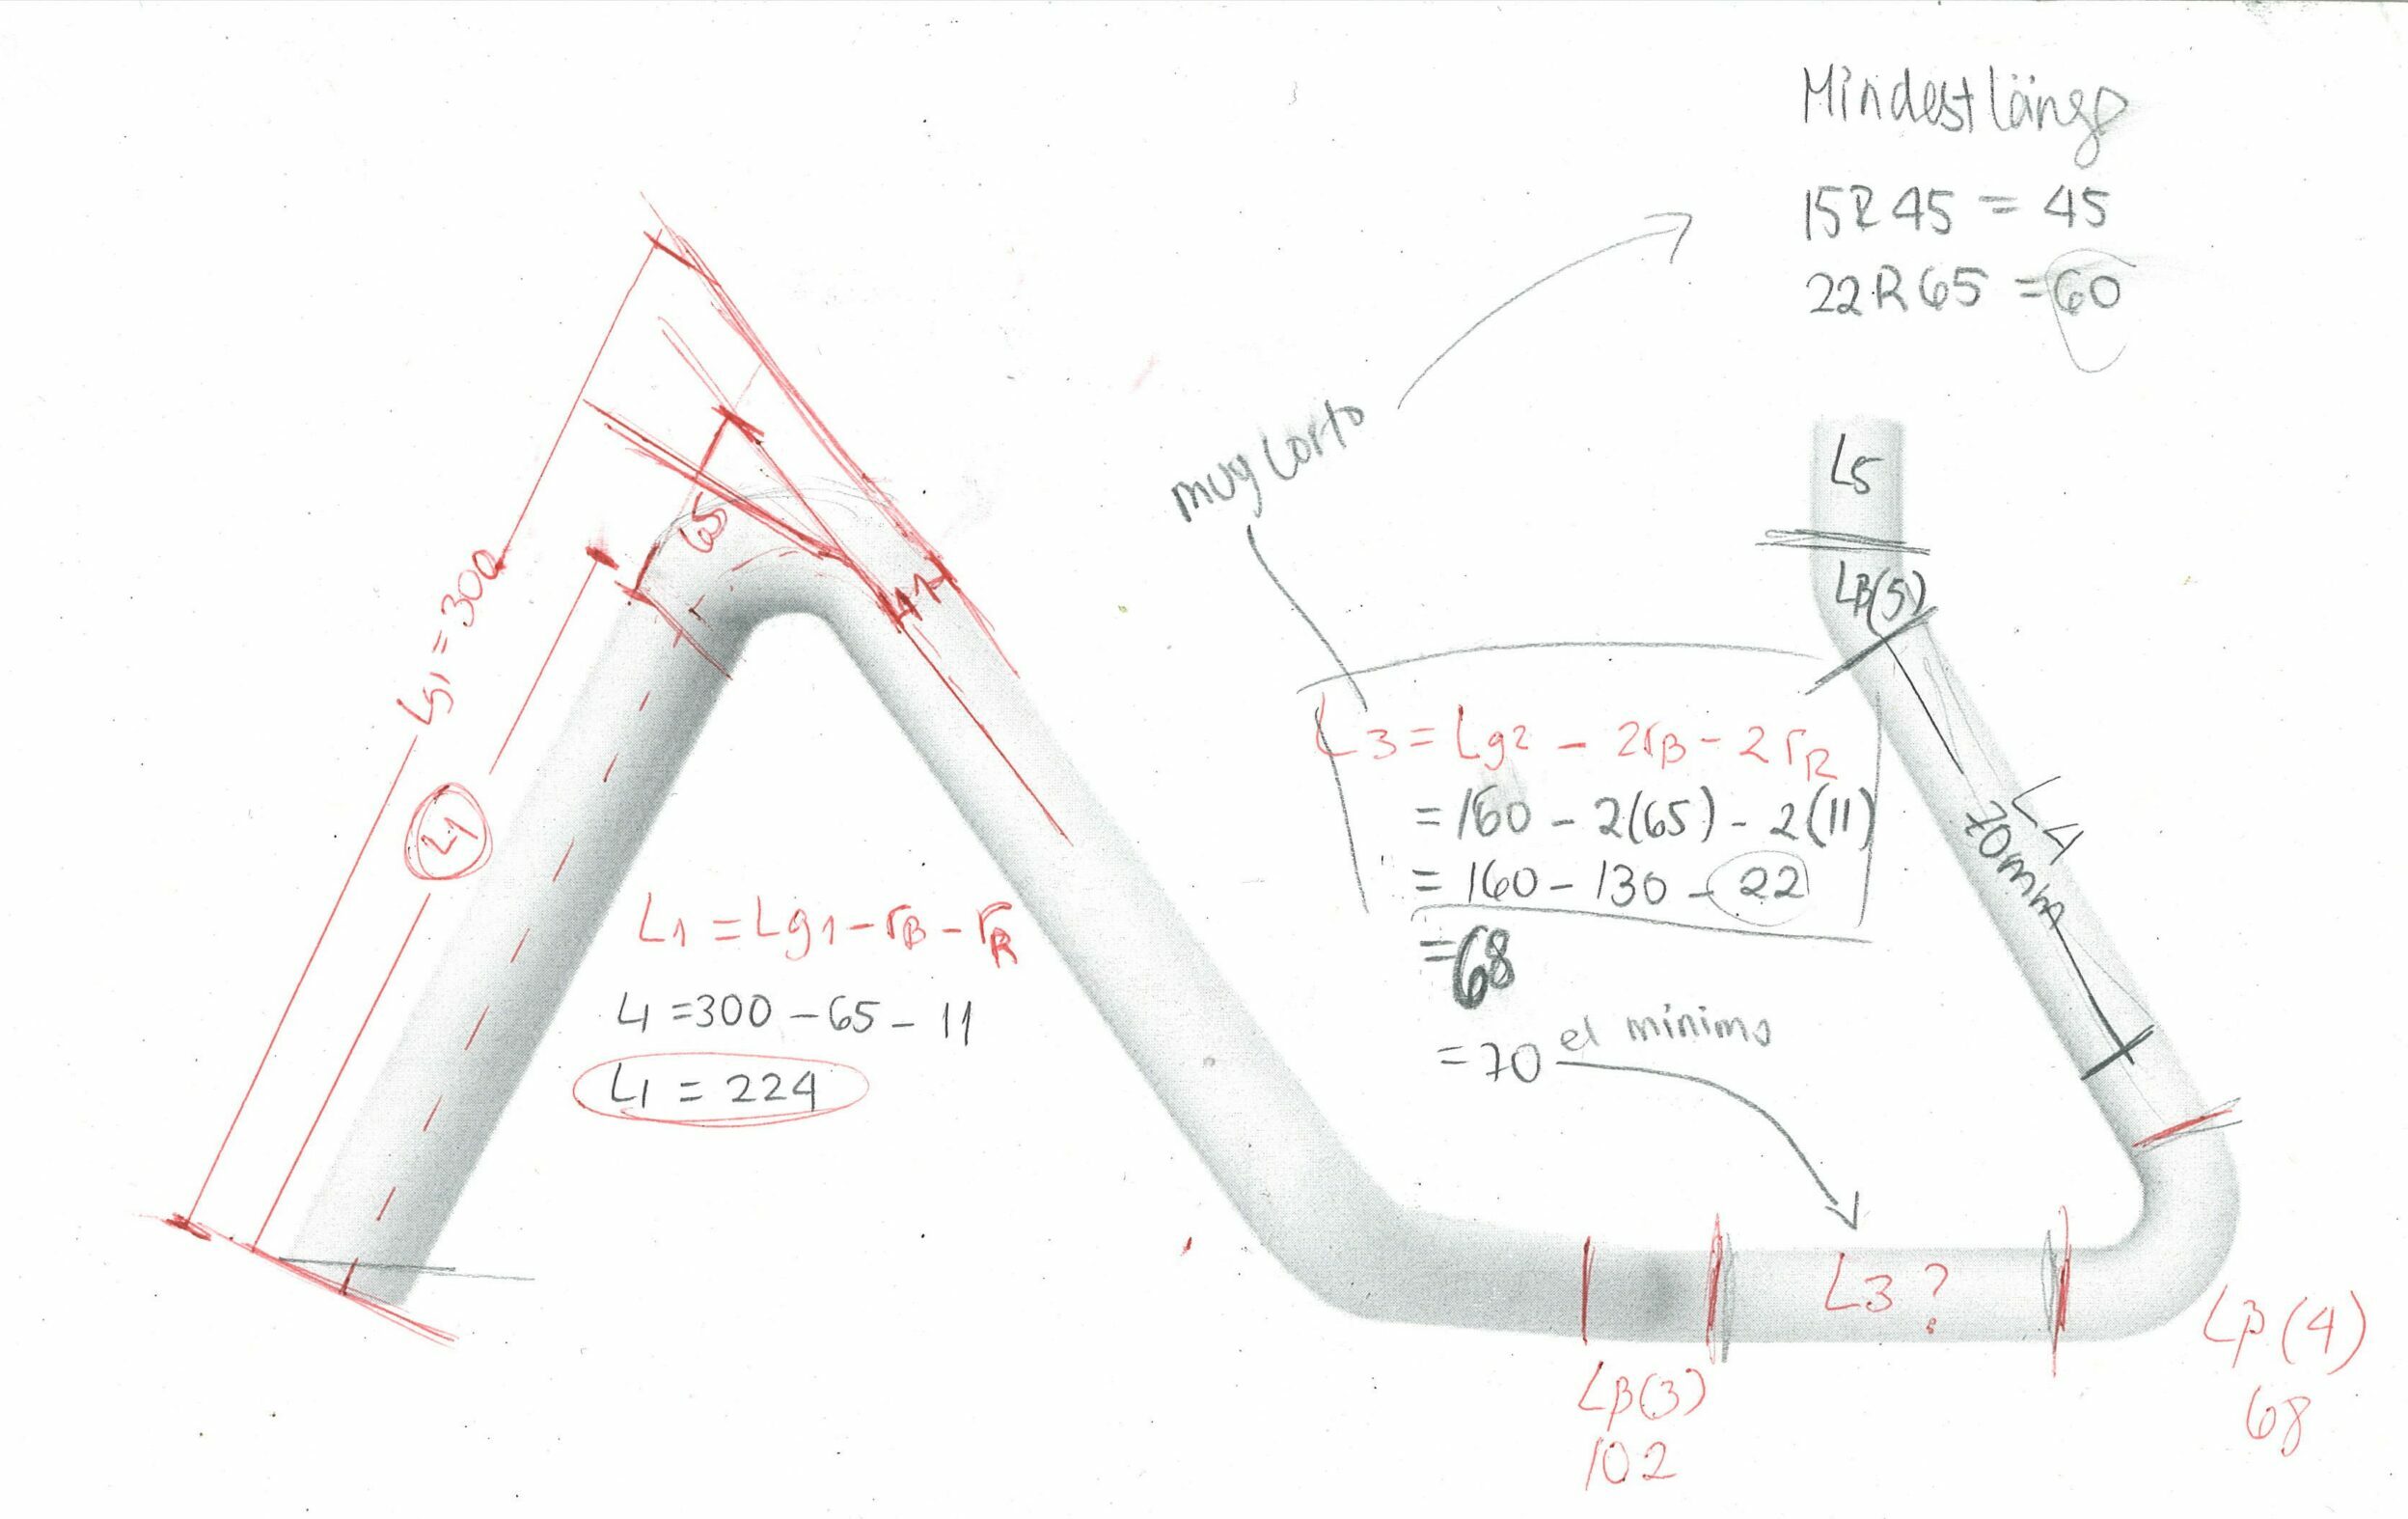 Mindestlänge
15R45 = 45
22R65 = 60
muy corto
Lg1 = 300
65
11
L1
L1 = Lg1 - rB - rR
L1 = 300 - 65 - 11
L1 = 224
L3 = Lg2 - 2rB - 2rR
= 160 - 2(65) - 2(11)
= 160 - 130 - 22
= 68
= 70 el mínimo
L5
Lβ(5)
L4
70mm
L3?
Lβ(3)
102
Lβ(4)
68